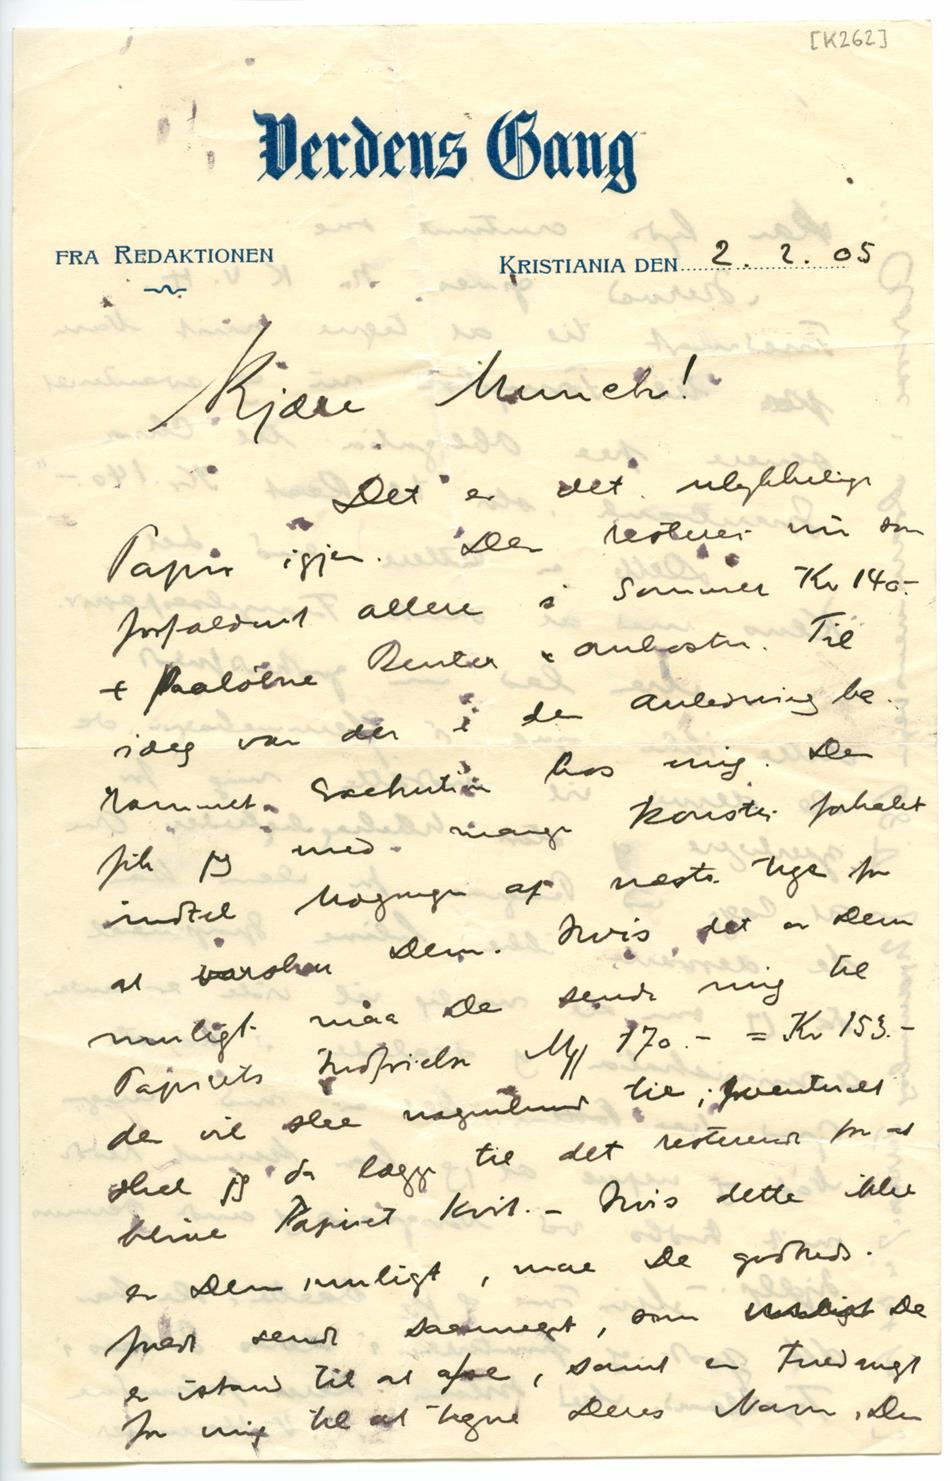 [K262]
Verdens Gang
FRA REDAKTIONEN
KRISTIANIA DEN 2. 2. 05
Kjære Munch!
Det er det ulykkelige
Papir igjen. Der resterer nu som
forfaldent allere i Sommer Kr 140.-
+ Paaløbne Renter & omkostn. Til
idag var der i den Anledning be-
rammet Exekution hos mig. Den
fik jeg med mange Kunster forhalet
indtil Udgangen af næste Uge for
at varsku Dem. Hvis det er Dem
muligt maa De sende mig til
Papirets Indfrielse M 170.- = Kr 153.-
det vil slee nogenlunde til, eventuelt
skal jeg da lægge til det resterende for at
blive Papiret Kvit. - Hvis dette ikke
er Dem muligt, maa De godheds-
fuldt sende saameget, som De
er istand til at afse, samt en Fuldmagt
for mig til at tegne Deres Navn, Der